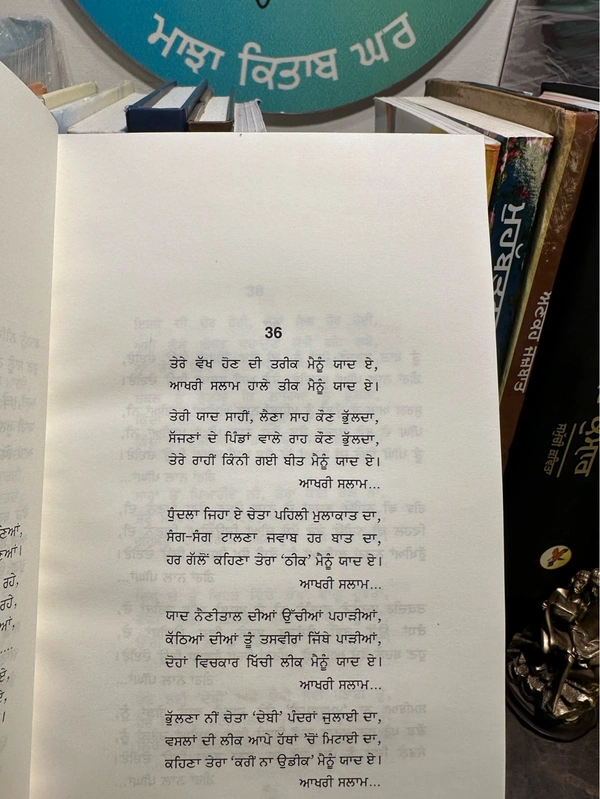 ਮਾਝਾ ਕਿਤਾਬ ਘਰ
36
ਤੇਰੇ ਵੱਖ ਹੋਣ ਦੀ ਤਰੀਕ ਮੈਨੂੰ ਯਾਦ ਏ,
ਆਖਰੀ ਸਲਾਮ ਹਾਲੇ ਤੀਕ ਮੈਨੂੰ ਯਾਦ ਏ।
ਤੇਰੀ ਯਾਦ ਸਾਹੀਂ, ਲੈਣਾ ਸਾਹ ਕੌਣ ਭੁੱਲਦਾ,
ਸੱਜਣਾਂ ਦੇ ਪਿੰਡਾਂ ਵਾਲੇ ਰਾਹ ਕੌਣ ਭੁੱਲਦਾ,
ਤੇਰੇ ਰਾਹੀਂ ਕਿੰਨੀ ਗਈ ਬੀਤ ਮੈਨੂੰ ਯਾਦ ਏ।
ਆਖਰੀ ਸਲਾਮ...
ਧੁੰਦਲਾ ਜਿਹਾ ਏ ਚੇਤਾ ਪਹਿਲੀ ਮੁਲਾਕਾਤ ਦਾ,
ਸੰਗ-ਸੰਗ ਟਾਲਣਾ ਜਵਾਬ ਹਰ ਬਾਤ ਦਾ,
ਹਰ ਗੱਲੋਂ ਕਹਿਣਾ ਤੇਰਾ ‘ਠੀਕ’ ਮੈਨੂੰ ਯਾਦ ਏ।
ਆਖਰੀ ਸਲਾਮ...
ਯਾਦ ਨੈਣੀਤਾਲ ਦੀਆਂ ਉੱਚੀਆਂ ਪਹਾੜੀਆਂ,
ਕੱਠਿਆਂ ਦੀਆਂ ਤੂੰ ਤਸਵੀਰਾਂ ਜਿੱਥੇ ਪਾੜੀਆਂ,
ਦੋਹਾਂ ਵਿਚਕਾਰ ਖਿੱਚੀ ਲੀਕ ਮੈਨੂੰ ਯਾਦ ਏ।
ਆਖਰੀ ਸਲਾਮ...
ਭੁੱਲਣਾ ਨੀਂ ਚੇਤਾ ‘ਦੇਬੀ’ ਪੰਦਰਾਂ ਜੁਲਾਈ ਦਾ,
ਵਸਲਾਂ ਦੀ ਲੀਕ ਆਪੇ ਹੱਥਾਂ ’ਚੋਂ ਮਿਟਾਈ ਦਾ,
ਕਹਿਣਾ ਤੇਰਾ ‘ਕਰੀਂ ਨਾ ਉਡੀਕ’ ਮੈਨੂੰ ਯਾਦ ਏ।
ਆਖਰੀ ਸਲਾਮ...
ਅਣਕਹੇ ਜਜ਼ਬਾਤ
ਰਹੇ,
ਰਹੇ,